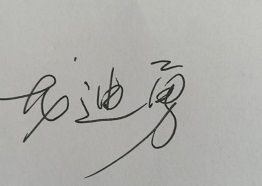 龙迪勇